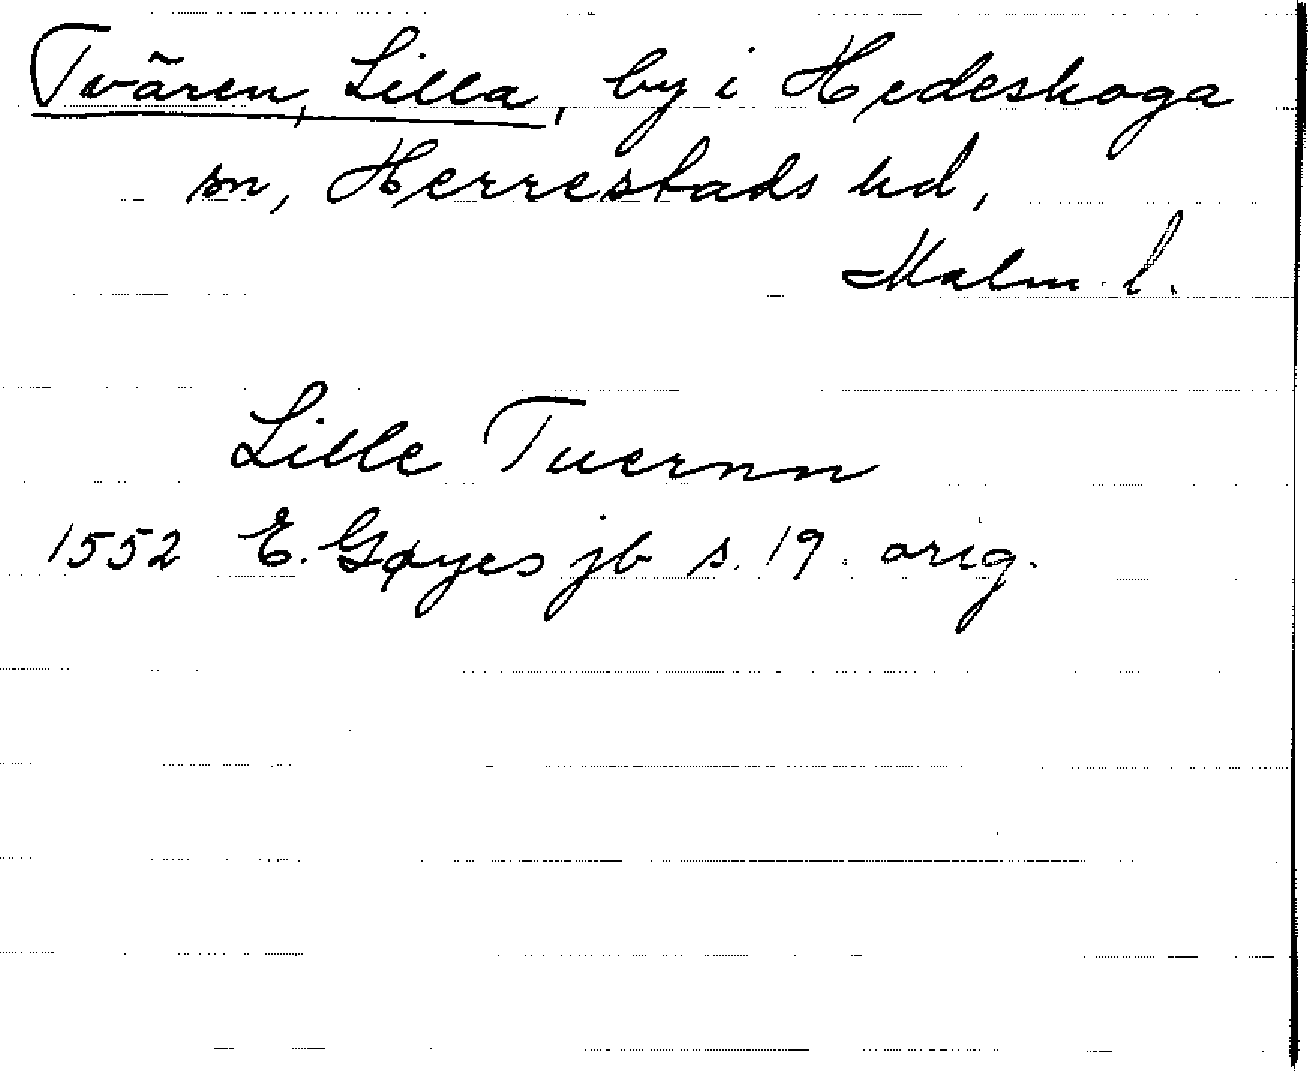 Tvären, Lilla, by i Hedeskoga
sn, Herrestads hd,
Malm. l.
Lille Tuernn
1552 E. Gøyes jb s. 19. orig.